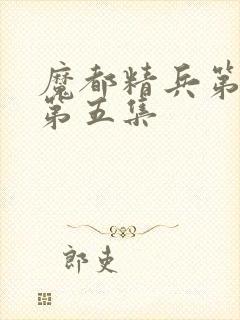 魔都精兵第
第五集
郎吏